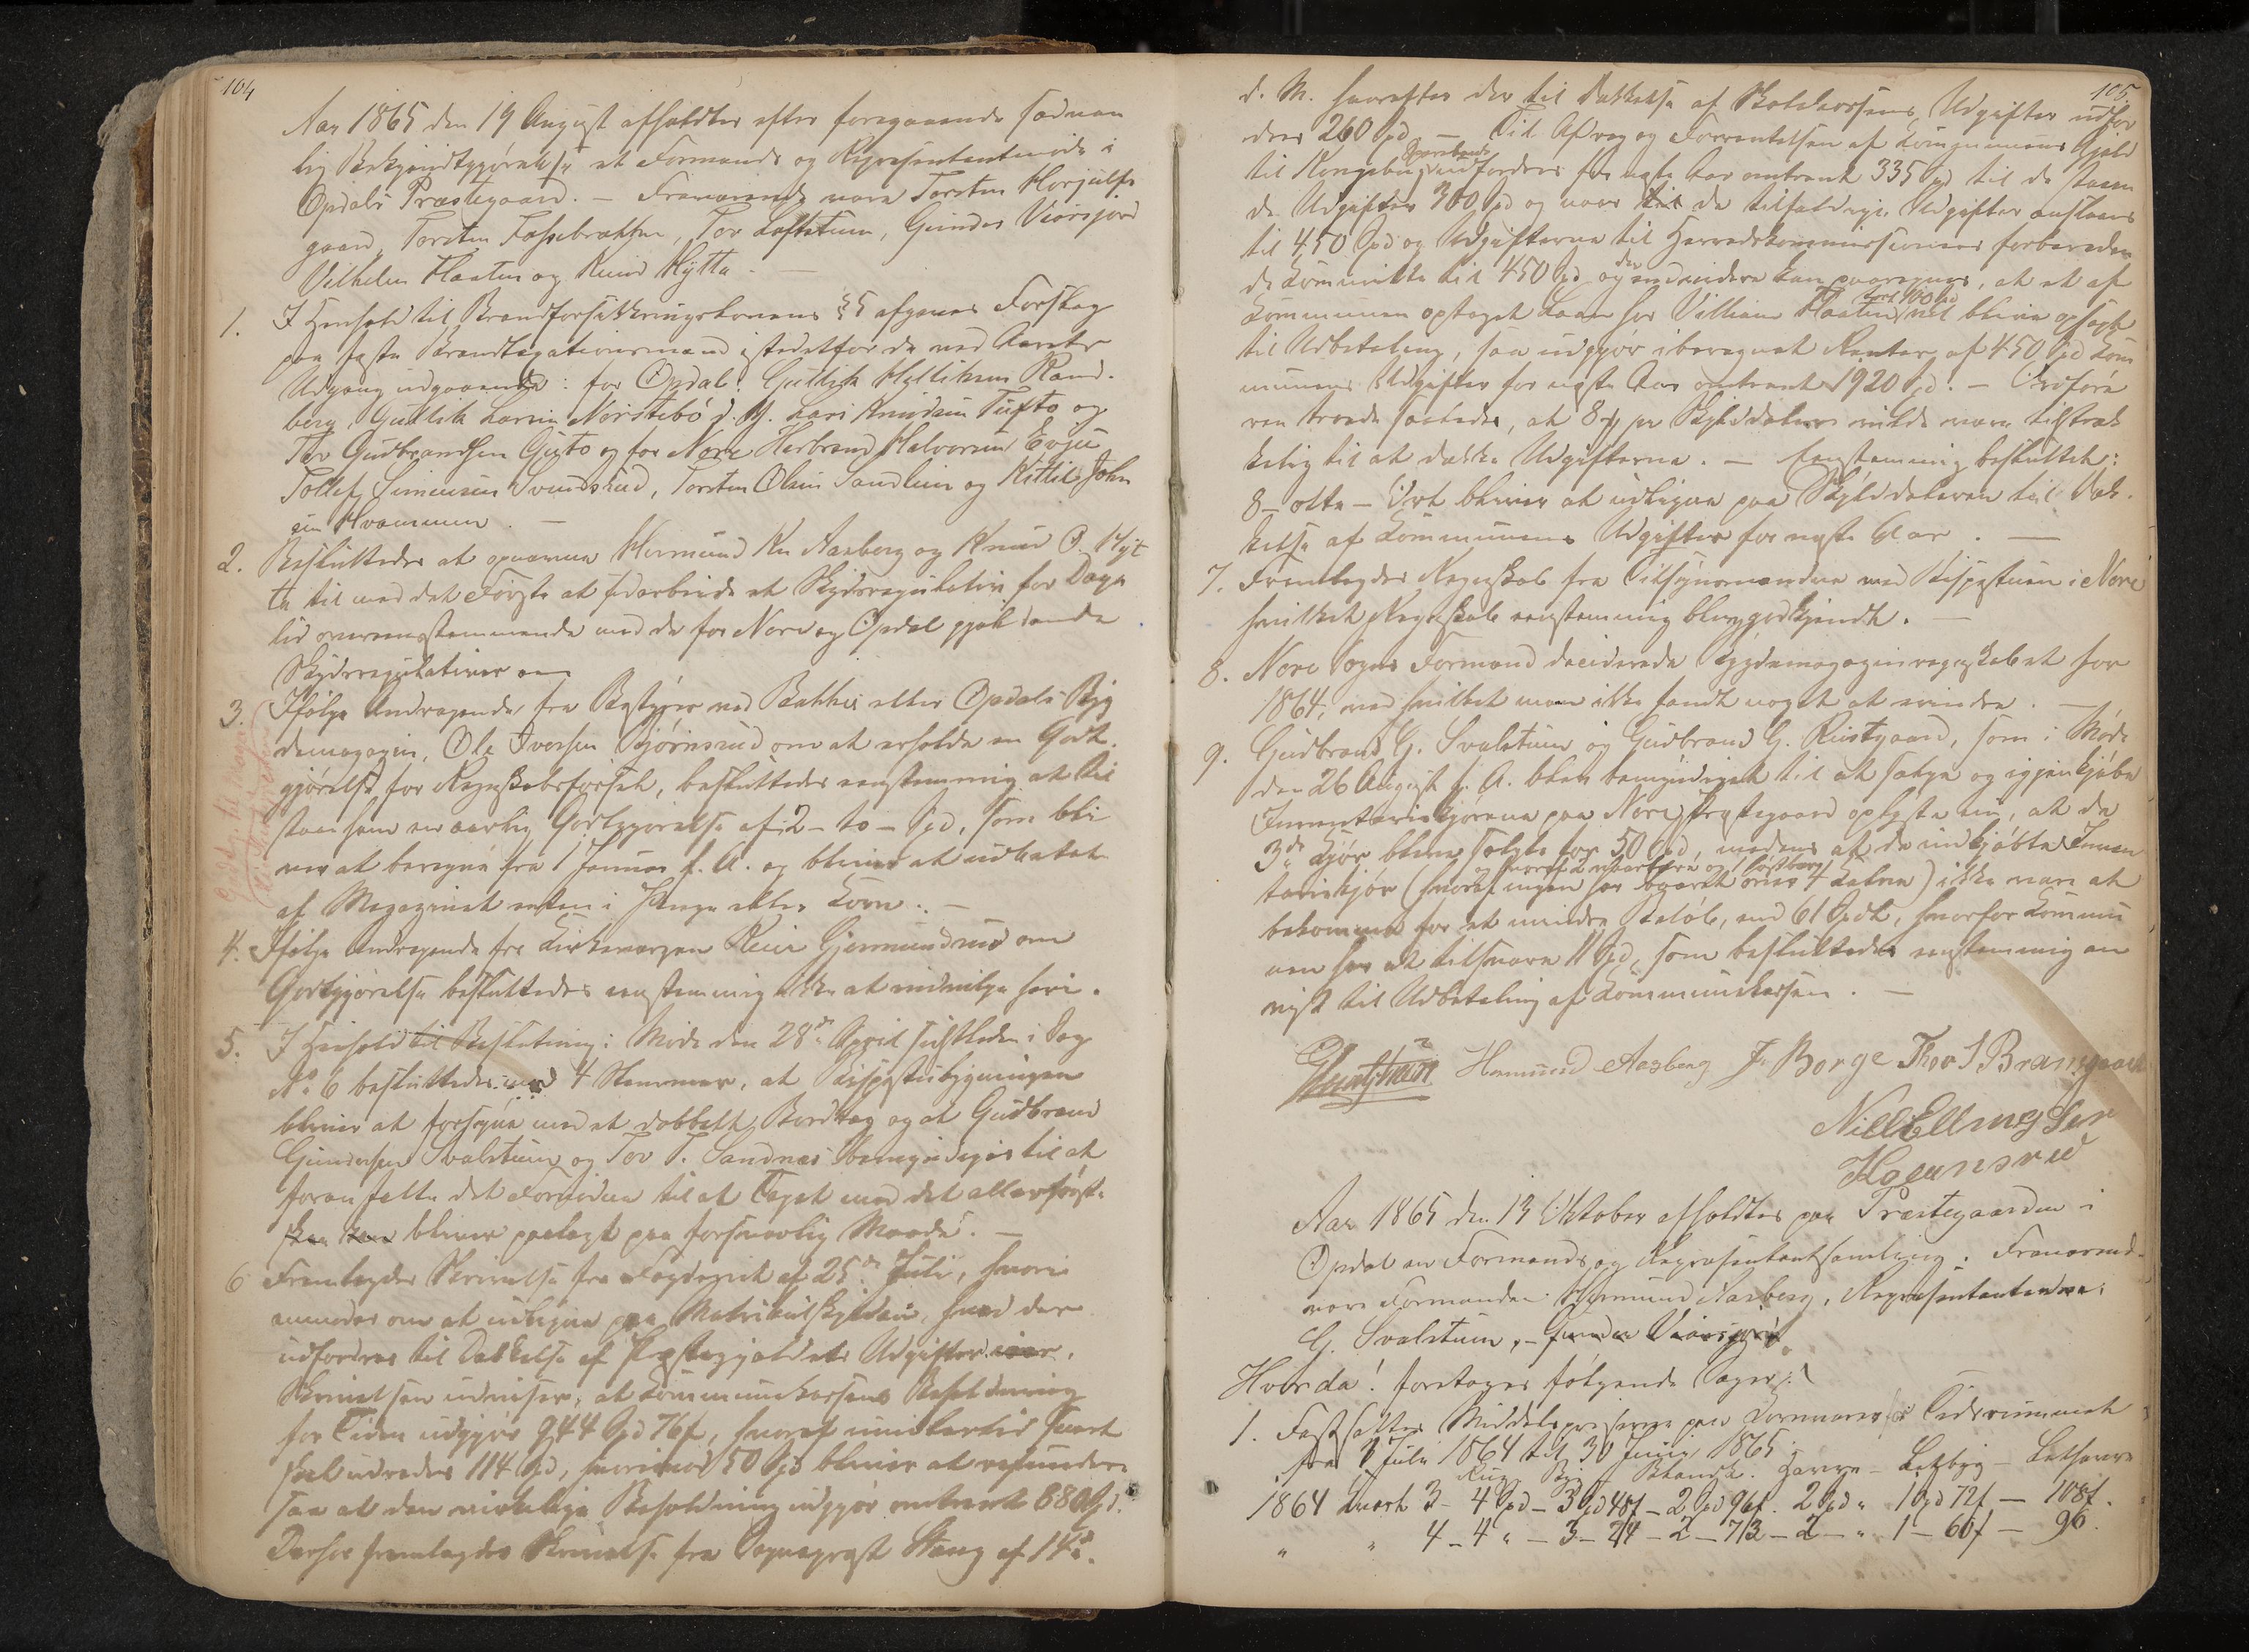 104
Aar 1865 den 19 August afholdtes efter foregaaende sædvan
lig Bekjendtgjørelse et Formands og Repræsentantmøde i
Opdals Præstegaard. – Fraværende vare Torsten Horjulfs
gaard, Torsten Fossebrækken, Tov Loftstuen, Gunder Viorsjord
Vilhelm Haaten og Knud Hytta. –
1. I Henhold til Brandforsikkringslovens §5 afgaves Forslag
paa faste Brandtaxationsmænd istedetfor de ved Aarets
Udgang udgaaende: for Opdal: Gullik Halliksen Rand-
berg, Gullik Larsen Nørstebø d. Y. Lars Knudsen Tufto og
Tov Gudbrandsen Gjuto og for Nore Herbrand Halvorsen Evju
Tollef Simensen Svendsrud, Torsten Olsen Sandlien og Kittil John
sen Hvammen. –
2. Besluttedes at opnævne Hermund Kn Aasberg og Knud O. Hyt
ta til med det Første at udarbeide et Skydsregulativ for Daga
lid overensstemmende med de for Nore og Opdal gjældende
Skydsregulativer
3. Ifølge Andragende fra Bestyrer ved Bakkes eller Opdals Byg
demagazin, Ole Iversen Bjørnsrud om at erholde en Godt
gjørelse for Regnskabsførsel, besluttedes eenstemmig at til
staa ham en aarlig Godtgjørelse af 2 – to – Spd, som bli
ver at beregne fra 1 Januar f. A. og bliver at udbetale
af Magazinet enten i Penge eller Korn. –
4. Ifølge Andragende fra Kirkeværgen Reier Gjermundrud om
Godtgjørelse besluttedes eenstemmig ikke at indvilge heri.
5. I Henhold til Beslutning i Møde den 28de April sidstleden i Sag
No 6 besluttedes med 4 Stemmer, at Kirkestubygningen
bliver at forsyne med et dobbelt Bordtag og at Gudbrand
Gundersen Svalstuen og Tov T. Sandnæs bemyndiges til at
foranstalte det Fornødne til at Taget med det allerførste
bliver paalagt paa forsvarlig Maade. –
6 Fremlagdes Skrivelse fra Fogderiet af 25de Juli, hvori
anmodes om at udligne paa Matrikulskylden, hvad der
udfordres til Dækkelse af Præstegjældets Udgifter
Skrivelsen udviser, at Kommunekassens Beholdning
for Tiden udgjør 944 Spd 76 s, hvoraf imidlertid snart
skal udredes 114 Spd, hvorimod 50 Spd bliver at refundere
saa at den virkelige Beholdning udgjør omtrent 880 Spd.
Derhos fremlagdes Skrivelse fra Sognepræst Stang af 14de
105.
d. M. hvorefter der til Dækkelse af Skolekassens Udgifter udfor
dres 260 Spd – Til Afdrag og Forrentelsen af Kommunens Gjæld
til Kongsberg Sparebank udfordres for næste Aar omtrent 335 Spd til de staaen
de Udgifter 300 Spd og naar de tilfældige Udgifter anslaaes
til 450 Spd og Udgifterne til Herredskommissionens forbereden
de Kommitte til 450 Spd og der endvidere kan paaregnes, at et af
Kommunen optaget Laan hos Villiam Haaten stort 100 Spd vil blive opsagt
til Udbetaling, saa udgjør iberegnet Renter af 450 Spd Kom
munens Udgifter for næste Aar omtrent 1920 Spd. – Ordføre
ren troede saaledes, at 8 ß pr Skylddaler vilde være tilstræk
kelig til at dække Udgifterne. – Eenstemmig besluttet:
8 – otte – Ort bliver at udligne paa Skylddaleren til Dæk
kelse af Kommunens Udgifter for næste Aar. –
7. Fremlagdes Regnskab fra Tilsynsmændene med Kirkestuen i Nore
hvilket Regnskab eenstemmig blev godkjendt. –
8. Nore Sogns Formænd deciderede Bygdemagazinregnskabet for
1864, ved hvilket man ikke fandt noget at erindre. –
9. Gudbrand G. Svalstuen og Gudbrand G. Rustgaard, som i Møde
den 26 August f. A. blev bemyndiget til at sælge og igjenkjøbe
Inventariekjørene paa Nore Præstegaard oplyste nu, at de
3de Kjør bleve solgte for 50 Spd, medens af de indkjøbte Inven
tariekjør ikke vare at
bekomme for et mindre Beløb, end 61 Spd, hvorfor Kommu
nen har at tilsvare 11 Spd, som besluttedes eenstemmig an
vist til Udbetaling af Kommunekassen. –
Hermund Aasberg J. Borge Thov S Bramsgaard
Niels Ellingsen
Aar 1865 den 13 Oktober afholdtes paa Præstegaarden i
Opdal en Formands og Repræsentantsamling. Fraværende
vare Formanden: Hermund Aasberg, Repræsentanterne:
G. Svalstuen, – Gunder Viorsjord.
Hvorda! foretoges følgende Sager:
1. Fastsattes Middelpriserne paa Kornvarer for Tidsrummet
fra 1 Juli 1864 til 30 Juni 1865
Rug Byg Blandk. Havre – Letbyg – Lethavre
1864 Qvart 3 – 4 Spd – 3 Spd 48 s – 2 Spd 96 s. 2 Spd „ 1 Spd 72 s – 108 s.
„ „ 4 – 4 „ – 3 – 24 – 2 – 73 – 2 – „ 1 – 60 s – 96.